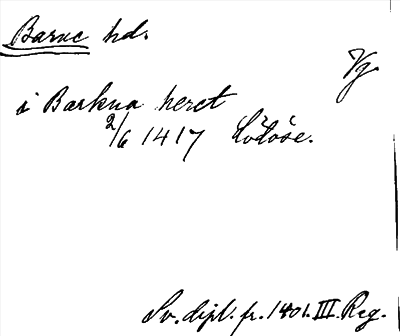 Barne hd.
Vg
i Barkna heret
2/6 1417 Lödöse.
Sv. dipl. fr. 1401. III. Reg.